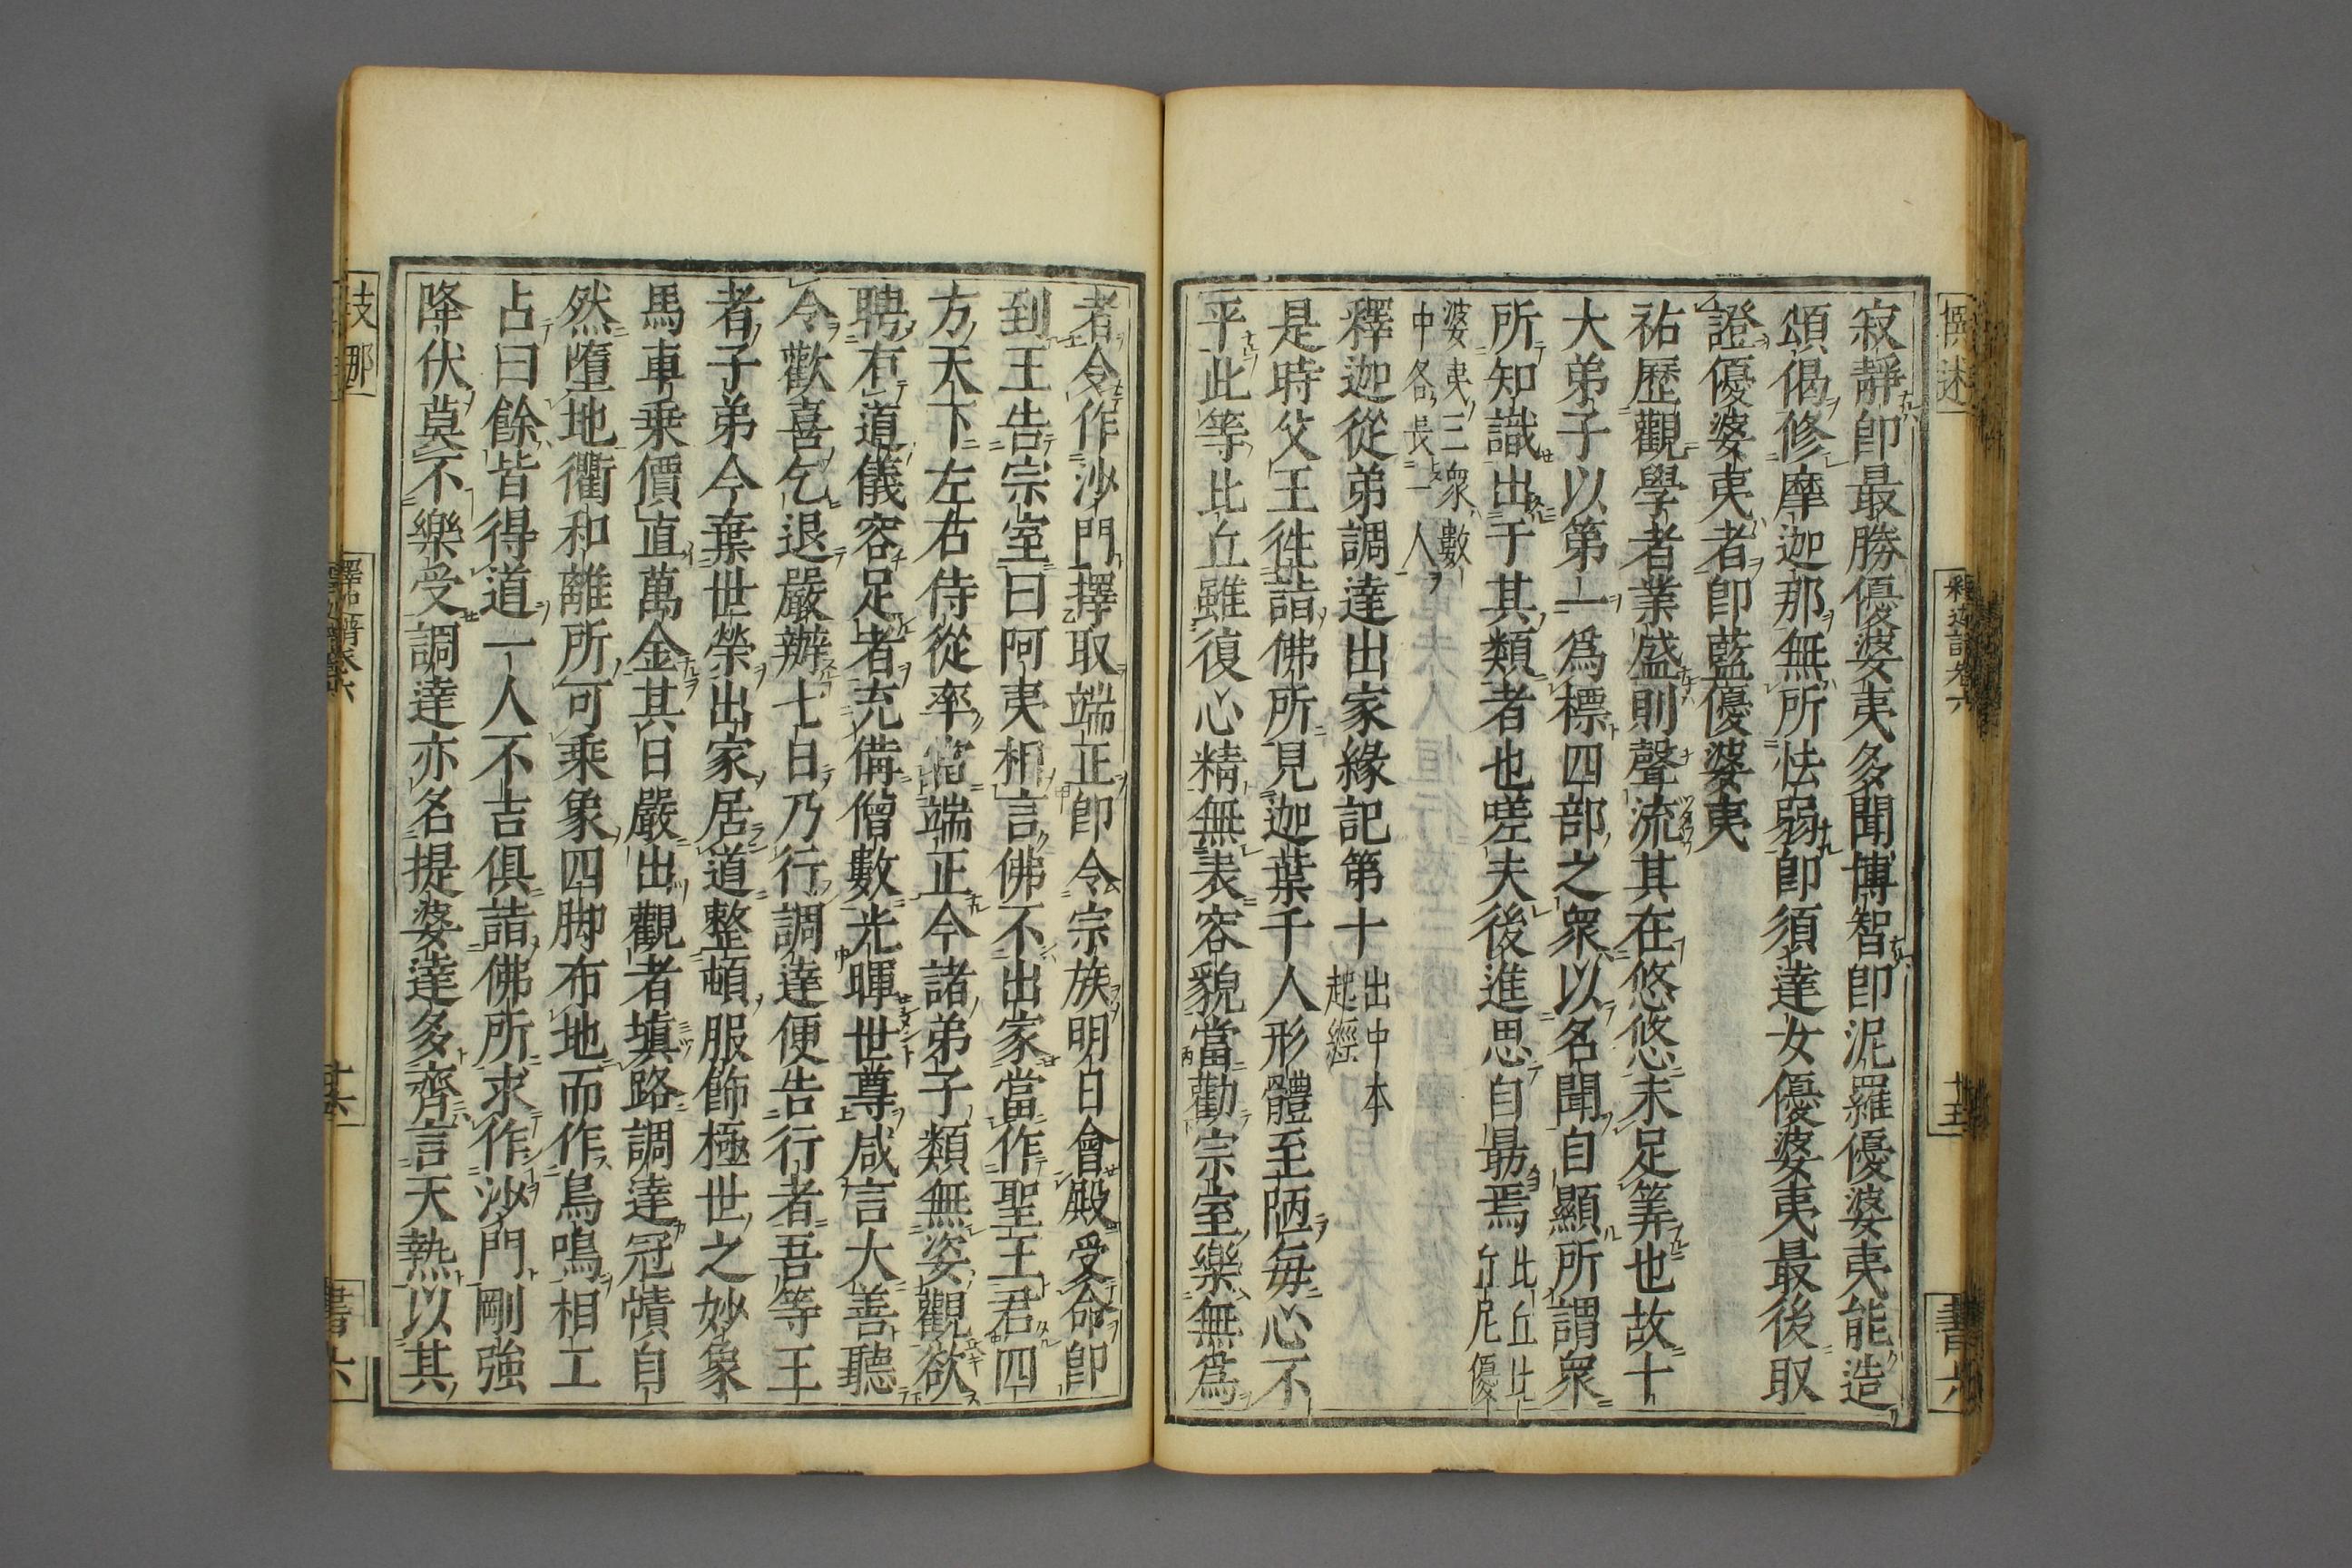 寂靜卽最勝優婆夷多聞博智卽泥羅優婆夷能造
頌偈修摩迦那無所怯弱卽須達女優婆夷最後取
證優婆夷者卽藍優婆夷
祐歷觀學者業盛則聲流其在悠悠未足筭也故十
大弟子以第一爲標四部之衆以名聞自顯所謂衆
所知識出于其類者也嗟夫後進思自勗焉比丘比
丘尼優
婆夷三衆數
中各長一人
釋迦從弟調達出家緣記第十出中本
起經
是時父王徃詣佛所見迦葉千人形體至陋每心不
平此等比丘雖復心精無表容貌當勸宗室樂無爲
者令作沙門擇取端正卽令宗族明日會殿受命卽
到王告宗室曰阿夷相言佛不出家當作聖王君四
方天下左右侍從率當端正今諸弟子類無姿觀欲
聘有道儀容足者充備僧數光暉世尊咸言大善聽
令歡喜乞退嚴辦七日乃行調達便告行者吾等王
者子弟今棄世榮出家居道整頓服飾極世之妙象
馬車乗價直萬金其日嚴出觀者塡路調達冠幘自
然墮地衢和離所可乘象四脚布地而作鳥鳴相工
占曰餘皆得道一人不吉俱詣佛所求作沙門剛強
降伏莫不樂受調達亦名提婆達多齊言天熱以其
釋迦譜卷六
廿五
書六
支那